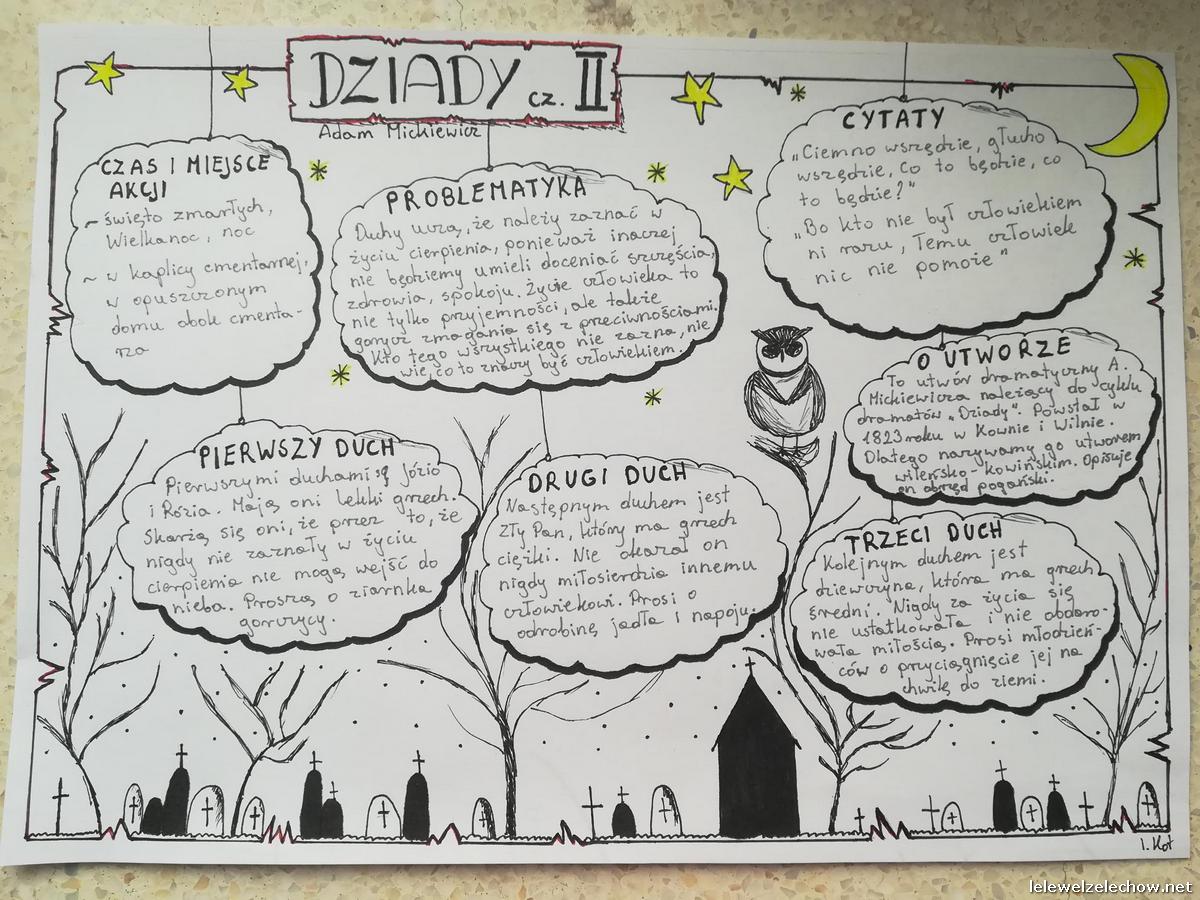 DZIADY cz. II
Adam Mickiewicz
CZAS I MIEJSCE
AKCJI
~ święto zmarłych,
Wielkanoc, noc
~ w kaplicy cmentarnej,
w opuszczonym
domu obok cmenta-
rza
PROBLEMATYKA
Duchy uczą, że należy zaznać w
życiu cierpienia, ponieważ inaczej
nie będziemy umieli doceniać szczęścia,
zdrowia, spokoju. Życie człowieka to
nie tylko przyjemności, ale także
gorycz zmagania się z przeciwnościami.
Kto tego wszystkiego nie zazna, nie
wie, co to znaczy być człowiekiem.
CYTATY
"Ciemno wszędzie, głucho
wszędzie, Co to będzie, co
to będzie?"
"Bo kto nie był człowiekiem
ni razu, Temu człowiek
nic nie pomoże"
O UTWORZE
To utwór dramatyczny A.
Mickiewicza należący do cyklu
dramatów „Dziady". Powstał w
1823 roku w Kownie i Wilnie.
Dlatego nazywamy go utworem
wileńsko-kowińskim. Opisuje
on obrzęd pogański.
PIERWSZY DUCH
Pierwszymi duchami są Józio
i Rózia. Mają oni lekki grzech.
Skarżą się oni, że przez to, że
nigdy nie zaznały w życiu
cierpienia nie mogą wejść do
nieba. Proszą o ziarnka
gorczycy.
DRUGI DUCH
Następnym duchem jest
Zły Pan, który ma grzech
ciężki. Nie okazał on
nigdy miłosierdzia innemu
człowiekowi. Prosi o
odrobinę jadła i napoju.
TRZECI DUCH
Kolejnym duchem jest
dziewczyna, która ma grzech
średni. Nigdy za życia się
nie ustatkowała i nie obdaro-
wała miłością. Prosi młodzień-
ców o przyciągnięcie jej na
chwilę do ziemi.
I. Kot
lelewelzelechow.net